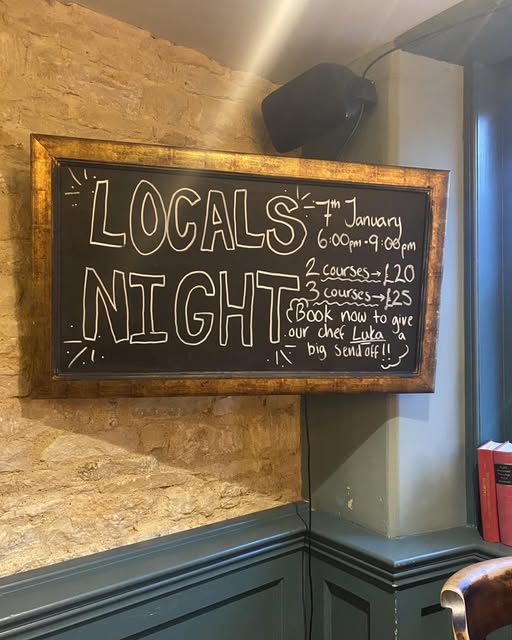 LOCALS
NIGHT
7th January
6:00pm-9:00pm
2 courses→£20
3 courses→£25
Book now to give
our chef Luka a
big send off!!